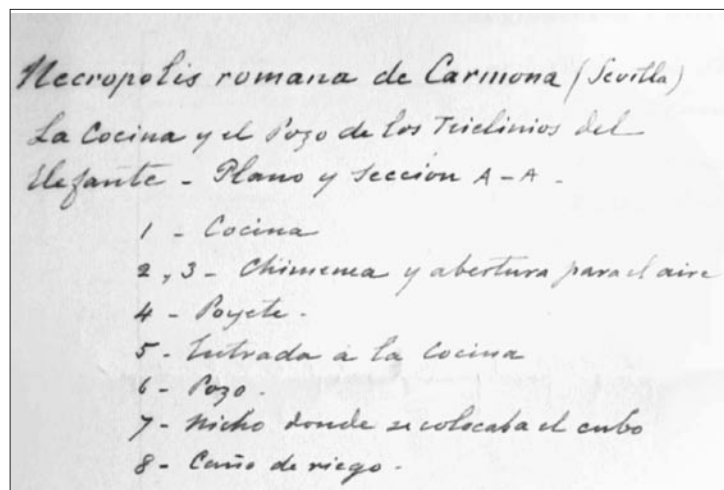 Necropolis romana de Carmona (Sevilla)
La Cocina y el Pozo de los Triclinios del
Elefante - Plano y Sección A-A.
1 - Cocina
2, 3 - Chimenea y abertura para el aire
4 - Poyete.
5 - Entrada á la Cocina
6 - Pozo.
7 - Nicho donde se colocaba el cubo
8 - Caño de riego.